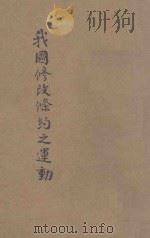 我國修改條約之運動
www.mtoou.info